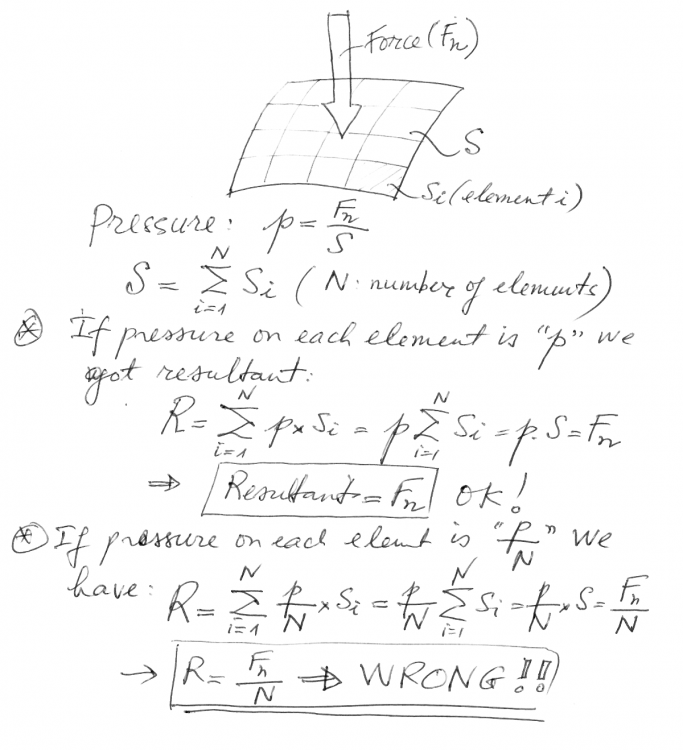 Force (Fn)
S
Si (element i)
Pressure: p = Fn/S
S = Σ_{i=1}^{N} Si (N: number of elements)
⊛ If pressure on each element is "p" we
got resultant:
R = Σ_{i=1}^{N} p × Si = p Σ_{i=1}^{N} Si = p . S = Fn
⇒ Resultant = Fn OK!
⊛ If pressure on each elemt is "p/N" we
have: R = Σ_{i=1}^{N} p/N × Si = p/N Σ_{i=1}^{N} Si = p/N × S = Fn/N
→ R = Fn/N ⇒ WRONG!!